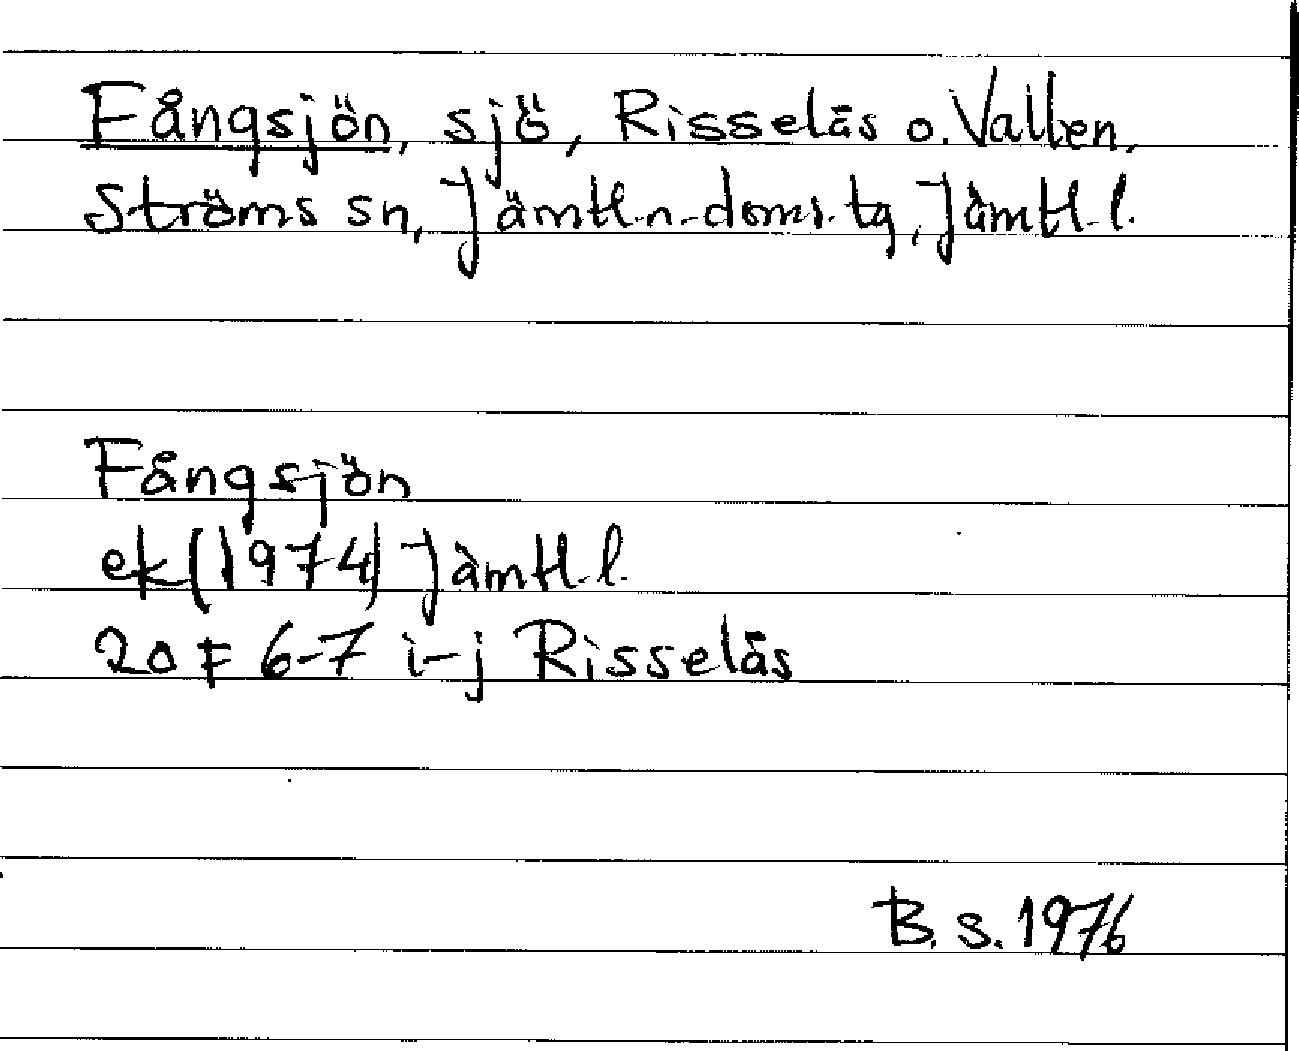 Fångsjön, sjö, Risselås o. Vallen,
Ströms sn, Jämtl.n.doms.tg, Jämtl.l.
Fångsjön
ek (1974) Jämtl.l.
20 F 6-7 i-j Risselås
B.S. 1976